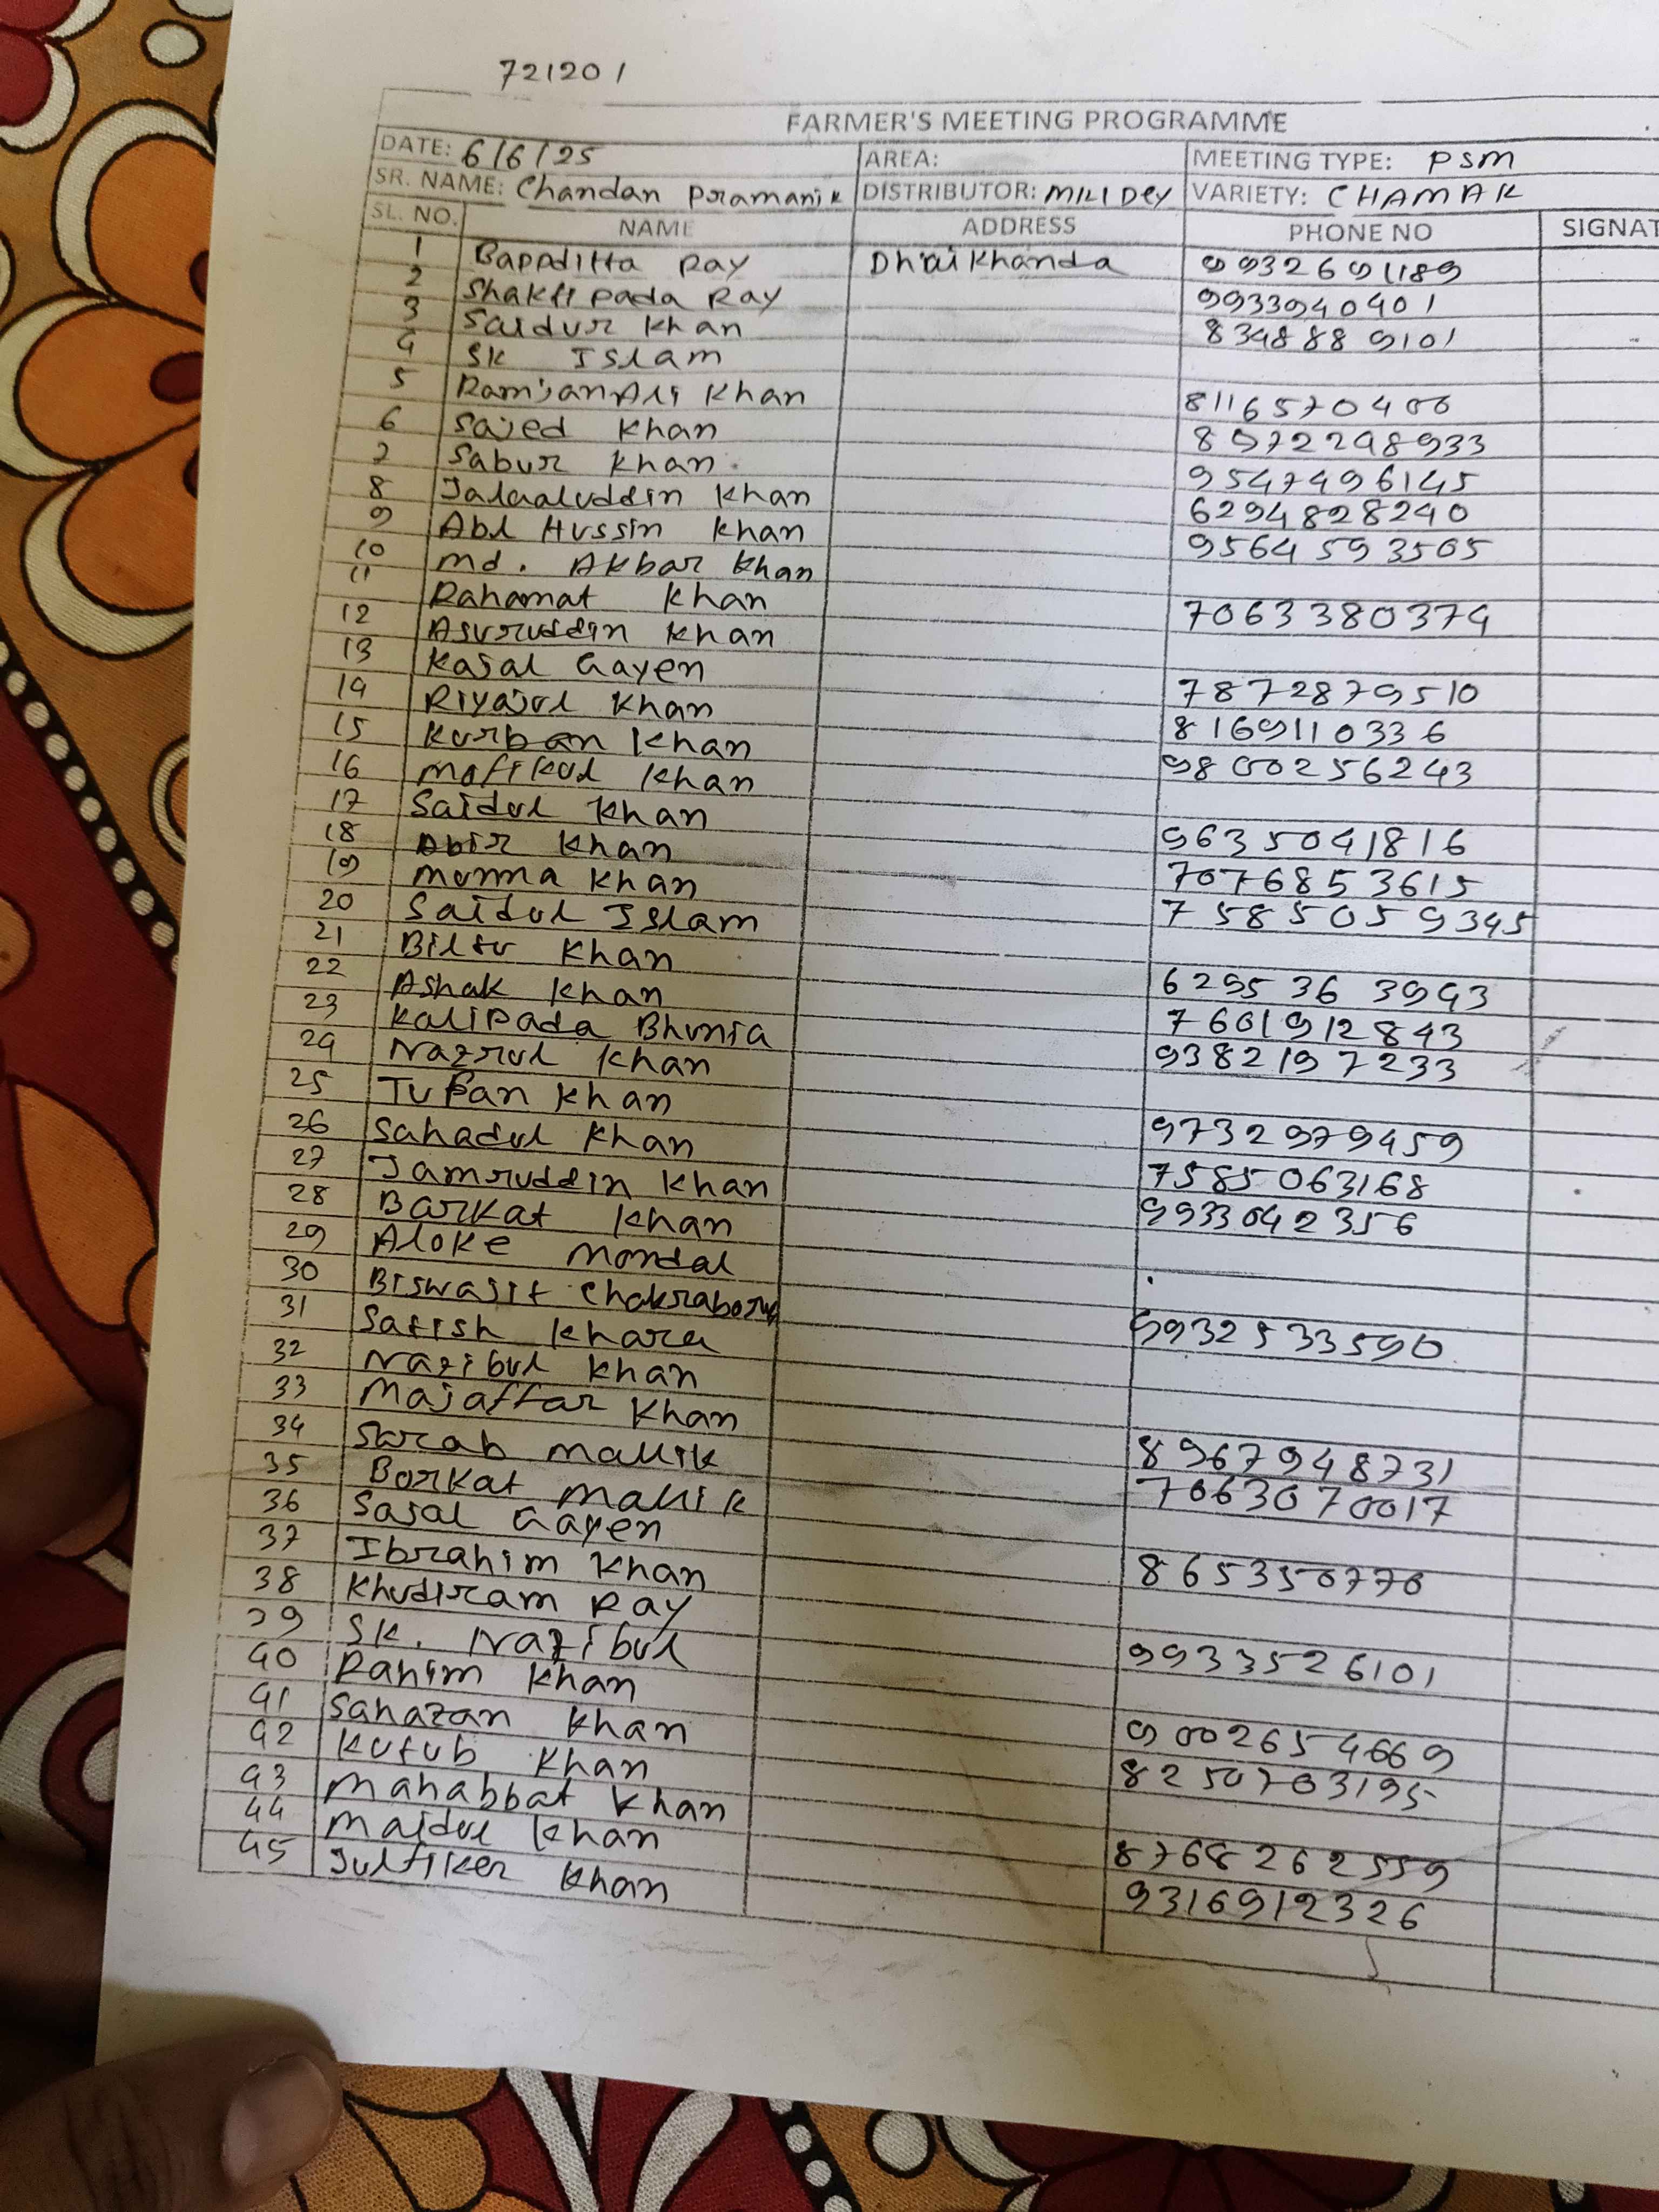 721201
FARMER'S MEETING PROGRAMME
DATE: 6/6/25 AREA: MEETING TYPE: PSM
SR. NAME: Chandan Pramanik DISTRIBUTOR: MILI Dey VARIETY: CHAMAK
SL. NO. NAME ADDRESS PHONE NO SIGNAT
1 Bappaditta Ray Dhaikhanda 9932691189
2 Shakti pada Ray 9933940401
3 Saidur Khan 8348889101
4 SK Islam
5 Ramjan Ali Khan 8116570400
6 Sajed Khan 8972248933
7 Sabur Khan 9547496145
8 Jalaluddin Khan 6294828240
9 Abl Hussin Khan 9564593505
10 Md. Akbar Khan
11 Rahamat Khan 7063380374
12 Asuruddin Khan
13 Kajal Gayen 7872879510
14 Riyajul Khan 8169110336
15 Kurban Khan 9800256243
16 Mofikul Khan
17 Saidul Khan 9635041816
18 Abir Khan 7076853615
19 Munna Khan 7585059345
20 Saidul Islam
21 Biltu Khan 6295363943
22 Ashak Khan 7601912843
23 Kalipada Bhunia 9382197233
24 Nazrul Khan
25 Tufan Khan 9732979459
26 Sahadul Khan 7585063168
27 Jamruddin Khan 9933042356
28 Barkat Khan
29 Aloke Mondal
30 Biswajit Chakraborty 9932533590
31 Satish Khara
32 Nazibul Khan
33 Majaffar Khan 8967948731
34 Sorab Mallik 7063070017
35 Borkat Mallik
36 Sajal Gayen 865350770
37 Ibrahim Khan
38 Khudiram Ray 9933526101
39 SK. Nazibul
40 Rahim Khan 9002654669
41 Sahazan Khan 8250703195
42 Kutub Khan
43 Mahabbat Khan 8768262559
44 Maidul Khan 9316912326
45 Julfiker Khan